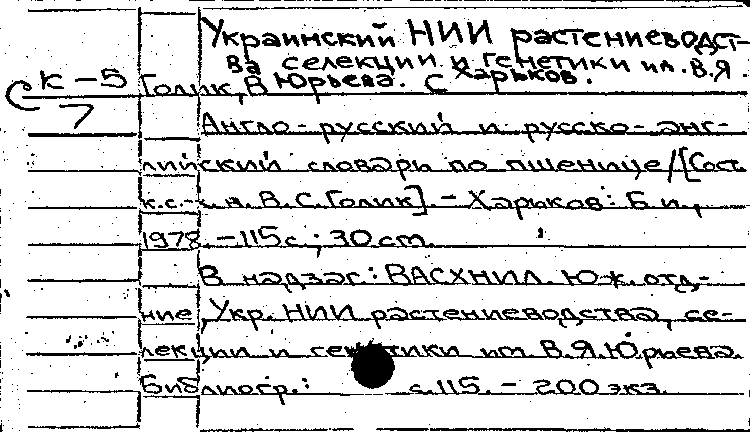 Украинский НИИ растениеводст-
ва селекции и генетики им. В.Я.
К-5 Голик, В Юрьева. С Харьков.
7
Англо-русский и русско-анг-
лийский словарь по пшенице/[Сост.
к.с.-х.н. В.С.Голик]. - Харьков: Б.и.,
1978. - 115с.; 30 cm.
В надзаг: ВАСХНИЛ. Юж. отд-
ние, Укр. НИИ растениеводства, се-
лекции и генетики им. В.Я.Юрьева.
Библиогр.: с.115. - 200 экз.